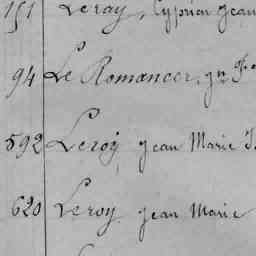 151 Leray, Cyprien Jean
94 Le Romancer, Jn Fs
592 Leroy Jean Marie
620 Leroy Jean Marie